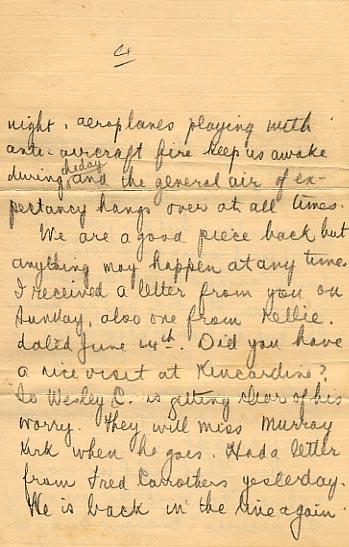 4
night. aeroplanes playing with
anti-aircraft fire keep us awake
during the day and the general air of ex-
pectancy hangs over at all times.
We are a good piece back but
anything may happen at any time.
I received a letter from you on
Sunday, also one from Nellie.
dated June 24th. Did you have
a nice visit at Kincardine?
So Wesley C. is getting clear of his
worry. They will miss Murray
Kirk when he goes. Had a letter
from Fred Carrothers yesterday.
He is back in the line again.